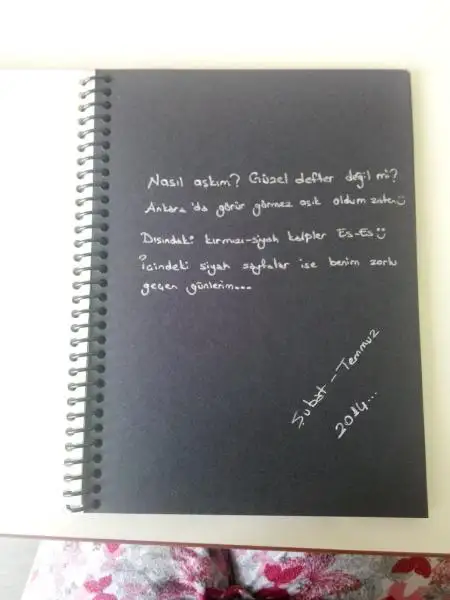 Nasıl aşkım? Güzel defter değil mi?
Ankara'da görür görmez aşık oldum zaten☺
Dışındaki kırmızı-siyah kalpler Es-Es☺
İçindeki siyah sayfalar ise benim zorlu
geçen günlerim...
Şubat - Temmuz
2014...